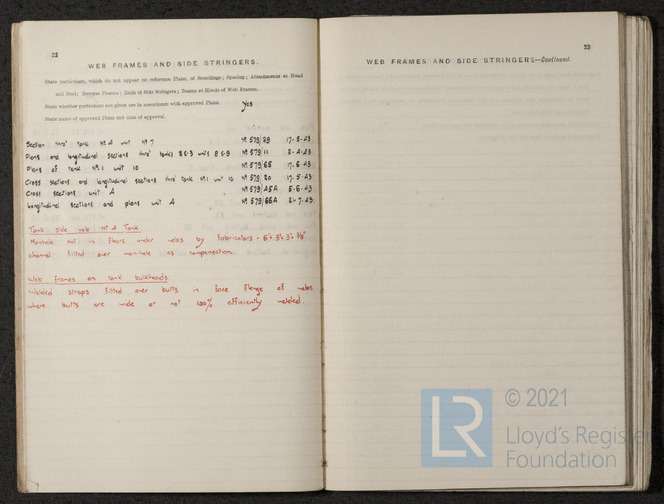 22
WEB FRAMES AND SIDE STRINGERS.
State particulars, which do not appear on reference Plans, of Scantlings; Spacing; Attachments at Head
and Heel; Bosom Frames; Ends of Side Stringers; Beams at Heads of Web Frames.
State whether particulars not given are in accordance with approved Plans. Yes
State name of approved Plans and date of approval.
Section thro' tank Nº 4 unit Nº 7 Nº 579/29 17-5-43
Plans and longitudinal sections thro' tanks 2&3 units 8&9 Nº 579/11 2-4-43
Plans of tank Nº 1 unit 10 Nº 579/65 17.6.43
Cross sections and longitudinal sections thro' tank Nº 1 unit 10 Nº 579/20 17.5.43
Cross sections unit A Nº 579/45A 5.6.43
Longitudinal sections and plans unit A Nº 579/66A 2-7.43
Tank side web Nº 4 Tank
Manhole cut in floors under webs by fabricators - 6" x 3" x 3" x 3/8"
channel fitted over manhole as compensation.
Web frames on tank bulkheads.
Welded straps fitted over butts in face flange of webs
where butts are wide or not 100% efficiently welded.
23
WEB FRAMES AND SIDE STRINGERS—Continued.
LR
© 2021
Lloyd's Register
Foundation